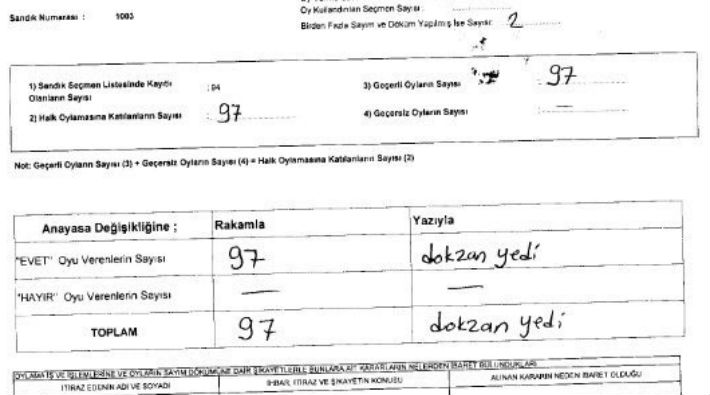 Oy Kullandırılan Seçmen Sayısı :
Sandık Numarası : 1003
Birden Fazla Sayım ve Döküm Yapılmış İse Sayısı: 2
1) Sandık Seçmen Listesinde Kayıtlı Olanların Sayısı : 94
3) Geçerli Oyların Sayısı 97
2) Halk Oylamasına Katılanların Sayısı : 97
4) Geçersiz Oyların Sayısı : —
Not: Geçerli Oyların Sayısı (3) + Geçersiz Oyların Sayısı (4) = Halk Oylamasına Katılanların Sayısı (2)
Anayasa Değişikliğine ; Rakamla Yazıyla
"EVET" Oyu Verenlerin Sayısı 97 dokzan yedi
"HAYIR" Oyu Verenlerin Sayısı — —
TOPLAM 97 dokzan yedi
OYLAMA İŞ VE İŞLEMLERİNE VE OYLARIN SAYIM DÖKÜMÜNE DAİR ŞİKAYETLERLE BUNLARA AİT KARARLARIN NELERDEN İBARET BULUNDUKLARI
İTİRAZ EDENİN ADI VE SOYADI İHBAR, İTİRAZ VE ŞİKAYETİN KONUSU ALINAN KARARIN NEDEN İBARET OLDUĞU